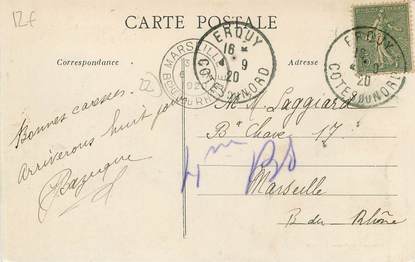 12f
CARTE POSTALE
Correspondance
Adresse
ERQUY
16 *
* 9
20
COTES DU NORD
ERQUY
16 *
* 9
20
COTES DU NORD
MARSEILLE
BCHES DU RHONE
22
Bonnes caresses.
Arriverons huit jours
Bazuque
M. A. Laggiard
Bd Chave 17
4me
Marseille
B. du Rhône